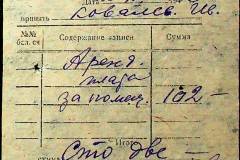 Дата
Ковалев. Ив.
принять
№№ Содержание записи Сумма
бел. сч
Аренд.
плата
за помещ. 102-
Итого
Сто две —